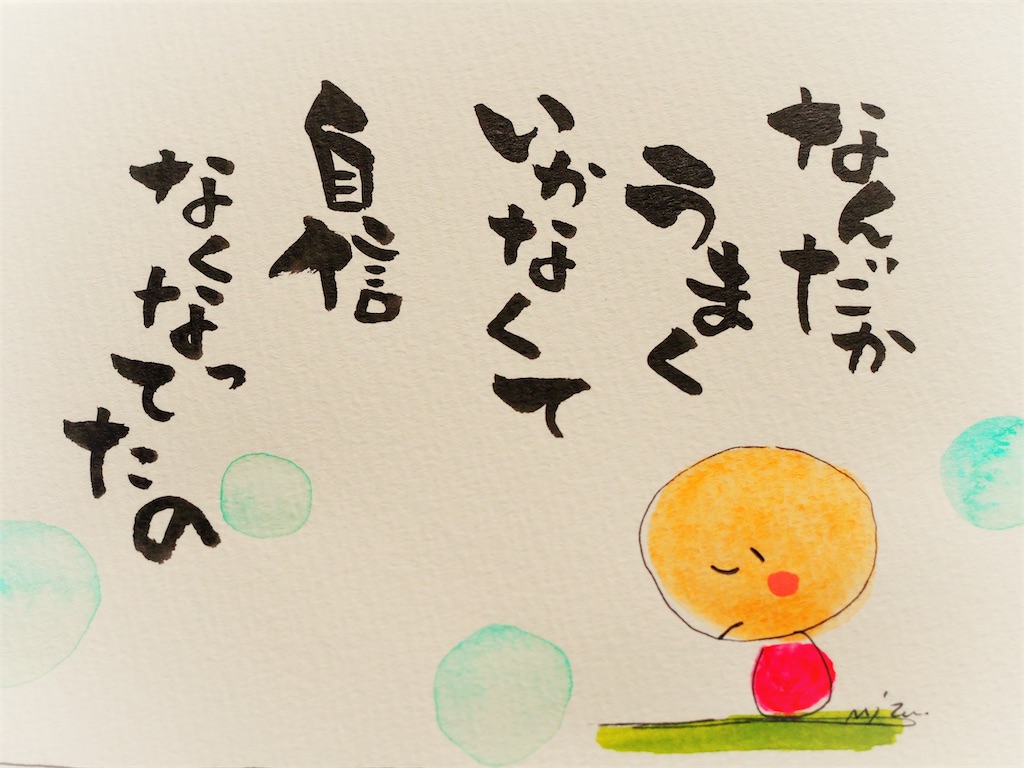 なんだか
うまく
いかなくて
自信
なくなってたの